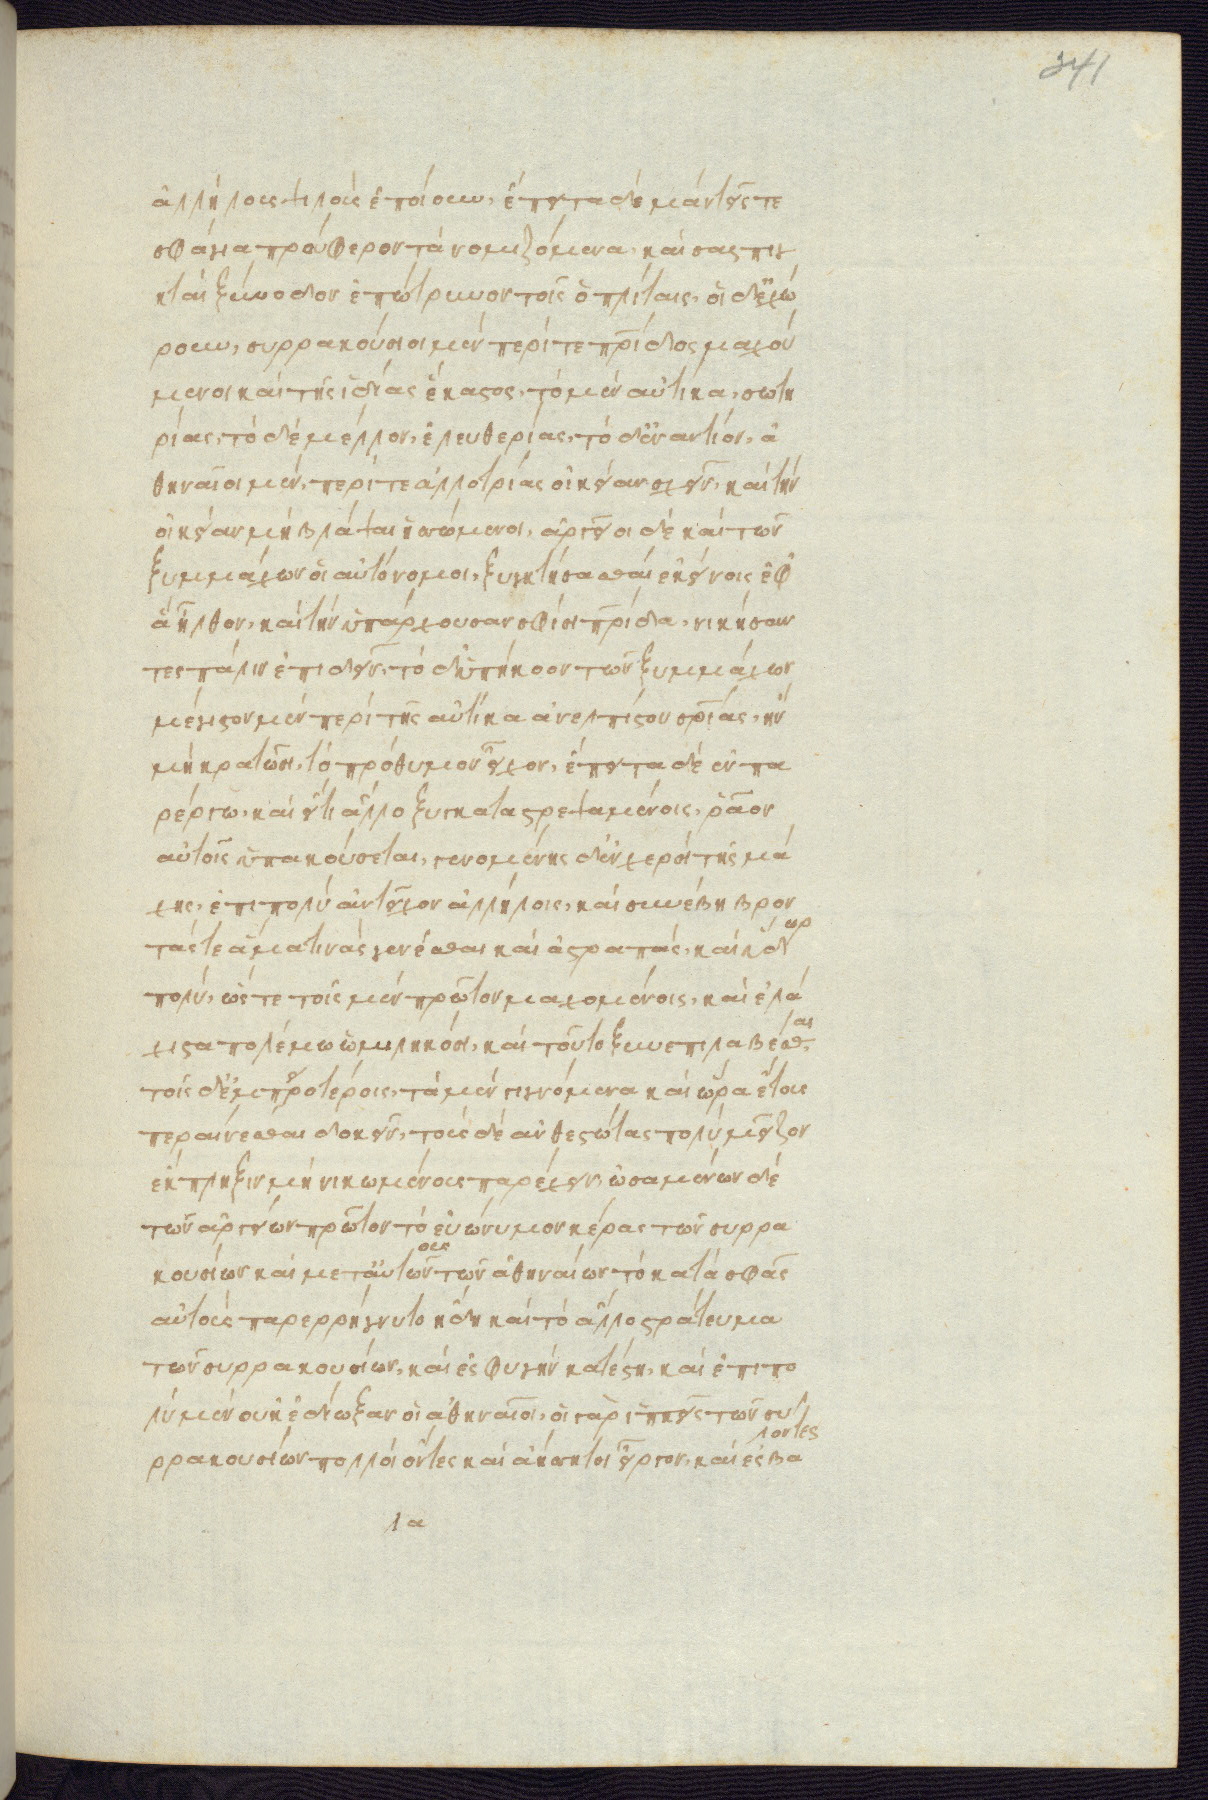 341
ἀλλήλους ψιλοὺς ἐποίουν, ἔπειτα δὲ μάντεῖς τε
σφάγια προύφερον τὰ νομιζόμενα, καὶ σαλπιγ
κταὶ ξύνοδον ἐπώτρυνον τοῖς ὁπλίταις, οἱ δ' ἐχώ
ρουν, συρρακούσιοι μὲν περί τε πρίδος μαχού
μενοι καὶ τῆς ἰδίας ἕκαστος, τὸ μὲν αὐτίκα, σωτη
ρίας, τὸ δὲ μέλλον, ἐλευθερίας, τῶ δ' ἐναντίον, ἀ
θηναῖοι μὲν, περί τε ἀλλοτρίας οἰκείαν σχεῖν, καὶ τὴν
οἰκείαν μὴ βλάψαι ἡσσώμενοι, ἀργεῖοι δὲ καὶ τῶν
ξυμμάχων οἱ αὐτόνομοι, ξυγκτήσασθαι ἐκείνοις ἐφ'
ἃ ἦλθον, καὶ τὴν ὑπάρχουσαν σφίσι πρίδα, νικήσαν
τες πάλιν ἐπιδεῖν, τὸ δ' ὑπήκοον τῶν ξυμμάχων
μέγιστον μὲν περὶ τῆς αὐτίκα ἀνελπίστου σρίας, ἢν
μὴ κρατῶσι, τὸ πρόθυμον εἶχον, ἔπειτα δὲ ἐν πα
ρέργω, καὶ εἴ τι ἄλλο ξυγκαταστρεψαμένοις, ῥᾶον
αὐτοῖς ὑπακούσεται, γενομένης δ' ἐν χερσὶ τῆς μά
χης, ἐπιπολὺ ἀντεῖχον ἀλλήλοις, καὶ συνέβη βρον
τάς τε ἅμα τινὰς γενέσθαι καὶ ἀστραπὰς, καὶ ὕδωρ
πολὺ, ὥστε τοῖς μὲν πρῶτον μαχομένοις, καὶ ἐλά
χιστα πολέμω ὡμιληκόσι, καὶ τοῦτο ξυνεπιλαβέσθαι
τοῖς δ' ἐμπροτέροις, τὰ μὲν γιγνόμενα καὶ ὥρα ἔτους
περαίνεσθαι δοκεῖν, τοὺς δὲ ἀνθεστῶτας πολὺ μεῖζον
ἔκπληξιν μὴ νικωμένους παρέχειν, ὠσαμένων δὲ
τῶν ἀργείων πρῶτον τὸ εὐώνυμον κέρας τῶν συρρα
κουσίων καὶ μετ' αὐτοὺς τῶν ἀθηναίων τὸ κατὰ σφᾶς
αὐτοὺς παρερρήγνυτο ἤδη καὶ τὸ ἄλλο στράτευμα
τῶν συρρακουσίων, καὶ ἐς φυγὴν κατέστη, καὶ ἐπιπο
λὺ μὲν οὐκ ἐδίωξαν οἱ ἀθηναῖοι, οἱ γὰρ ἱππεῖς τῶν συ
ρρακουσίων πολλοὶ ὄντες καὶ ἀήσσητοι εἶργον, καὶ ἐςβαλοντες
λα